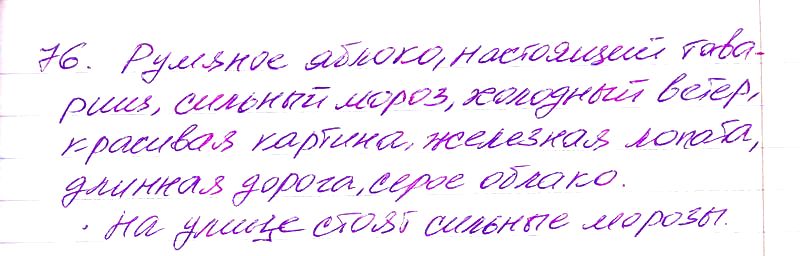 76. Румяное яблоко, настоящий това-
рищ, сильный мороз, холодный ветер,
красивая картина, железная лопата,
длинная дорога, серое облако.
На улице стоят сильные морозы.